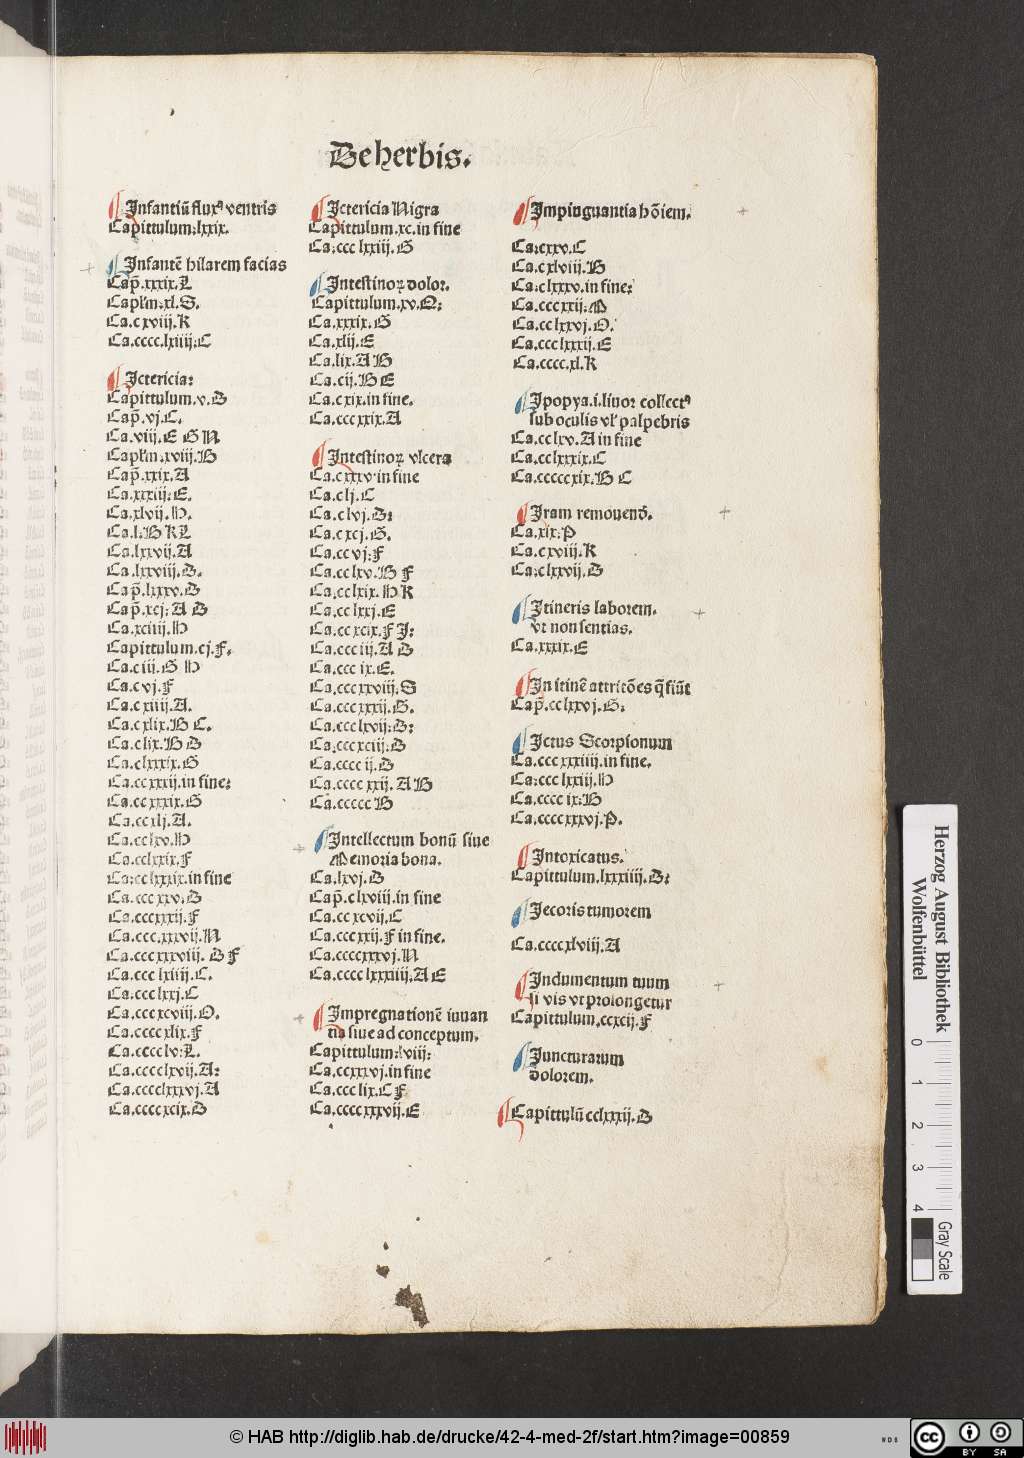 De herbis.
Infantiũ flux⁹ ventris
Capittulum:lxxix.
Infantẽ hilarem facias
Cap̃.xxxix.L
Capl'm:xl.S.
Ca.cxviij.K
Ca.cccc.lxiiij:C
Ictericia:
Capittulum.v.D
Cap̃.vj.C.
Ca.viij.E G N
Capl'm.xviij.B
Cap̃.xxix.A
Ca.xxxiij:E.
Ca.xlvij.H.
Ca.l:B K L
Ca.lxxvij.A
Ca.lxxviij.D.
Cap̃.lxxxv.D
Cap̃.xcj:A D
Ca.xciiij.H
Capittulum.cj.F.
Ca.ciij.G H
Ca.cvj.F
Ca.cxiiij.A.
Ca.cxlix.B C.
Ca.clix.B D
Ca.clxxxix.G
Ca.ccxxxij.in fine:
Ca.ccxxxix.G
Ca.ccxlj.A.
Ca.cclxv.H
Ca.cclxxix.F
Ca:cclxxxix.in fine
Ca.cccxxv.D
Ca.cccxxxij.F
Ca.ccc.xxxvij.N
Ca.cccxxxviij. D F
Ca.ccclxiiij.C.
Ca.ccclxxj.C
Ca.cccxcviij.O.
Ca.ccccxlix.F
Ca.cccclv:L.
Ca.cccclxvij.A:
Ca.cccclxxxvj.A
Ca.ccccxcix.D
Ictericia Nigra
Capittulum.xc.in fine
Ca:ccclxxiij.G
Intestinoꝝ dolor.
Capittulum.xv.Q:
Ca.xxxix.G
Ca.xlij.E
Ca.lix.A B
Ca.cij.B E
Ca.cxix.in fine.
Ca.cccxxix.A
Intestinoꝝ vlcera
Ca.cxxxv.in fine
Ca.clj.C
Ca.clvj.D:
Ca.cxcj.G.
Ca.ccvj:F
Ca.cclxv.B F
Ca.cclxix.H K
Ca.cclxxj.E
Ca.ccxcix.F I:
Ca.ccciij.A D
Ca.cccix.E.
Ca.cccxxviij.S
Ca.cccxxxij.G.
Ca.ccclxvij:D:
Ca.cccxciij:D
Ca.ccccij.D
Ca.ccccxxij.A B
Ca.ccccc B
Intellectum bonũ siue
Memoria bona.
Ca.lxvj.D
Cap̃.clxviij.in fine
Ca.ccxcvij.C
Ca.cccxxij.F in fine.
Ca.ccccxxxvj.N
Ca.cccclxxxiiij.A E
Impregnationẽ iuuan
tia siue ad conceptum.
Capittulum:lviij:
Ca.ccxxxvj.in fine
Ca.ccclix.C F
Ca.ccccxxxvij.E
Impinguantia hõiem.
Ca:cxxv.C
Ca.cxlviij.B
Ca:clxxxv.in fine:
Ca.cccxxij:M
Ca.cclxxvj.O.
Ca.ccclxxxij.E
Ca.cccc.xl.K
Ipopya.i.liuor collect⁹
sub oculis vl' palpebris
Ca.cclxv.A in fine
Ca.cclxxxix.C
Ca.cccccxix.B C
Iram remouend̃.
Ca.xix:P
Ca.cxviij.K
Ca:clxxvij.D
Itineris laborem.
vt non sentias.
Ca.xxxix.E
In itinẽ attritões q̃ fiũt
Cap̃.cclxxvj.G:
Ictus Scorpionum
Ca.cccxxxiiij.in fine.
Ca:ccclxxiij.H
Ca.ccccix:B
Ca.ccccxxxvj.P.
Intoxicatus.
Capittulum.lxxxiiij.D:
Iecoris tumorem
Ca.ccccxlviij.A
Indumentum tuum
si vis vt prolongetur
Capittulum.ccxcij.F
Iuncturarum
dolorem.
Capittulũ cclxxxij.D
Herzog August Bibliothek
Wolfenbüttel
0 1 2 3 4
Gray Scale
© HAB http://diglib.hab.de/drucke/42-4-med-2f/start.htm?image=00859
WDB
cc BY SA